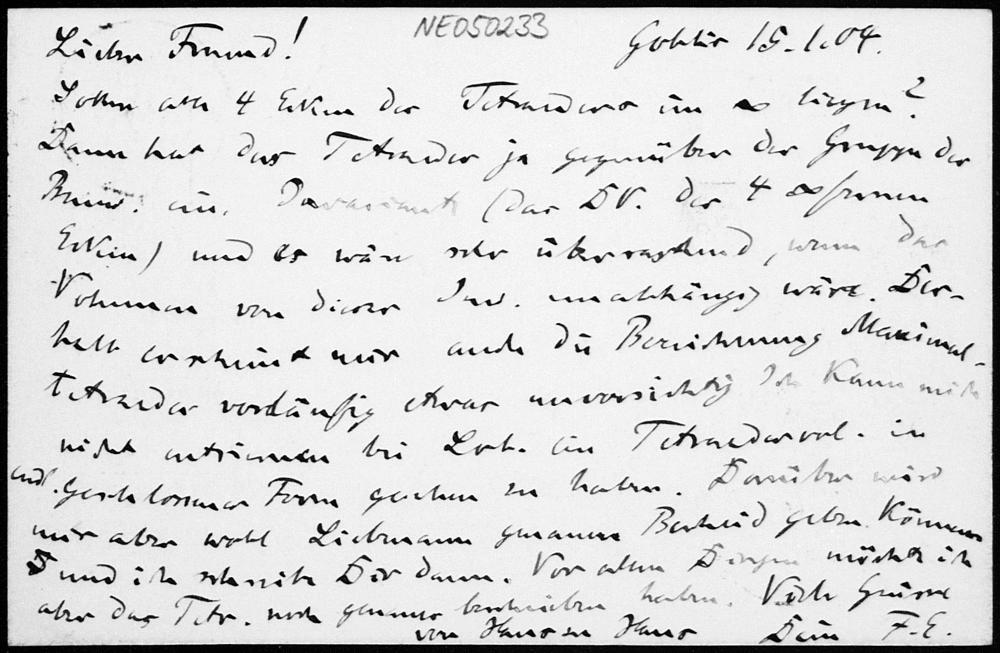 NE050233
Lieber Freund! Gohlis 15.1.04.
Sollen alle 4 Ecken des Tetraeders im ∞ liegen?
Dann hat das Tetraeder ja gegenüber der Gruppe der
Beweg. ein. Invariante (das DV. der 4 ∞fernen
Ecken) und es wäre sehr überraschend, wenn das
Volumen von dieser Inv. unabhängig wäre. Des-
halb erscheint mir auch die Bezeichnung Maximal-
tetraeder vorläufig etwas unvorsichtig. Ich kann mich
nicht entsinnen bei Lob. ein Tetraedervol. in
endl. geschlossener Form gesehen zu haben. Darüber wird
mir aber wohl Liebmann genauen Bescheid geben können
und ich schreibe Dir dann. Vor allen Dingen möchte ich
aber das Tetr. noch genauer beschrieben haben. Viele Grüsse
von Haus zu Haus Dein F.E.